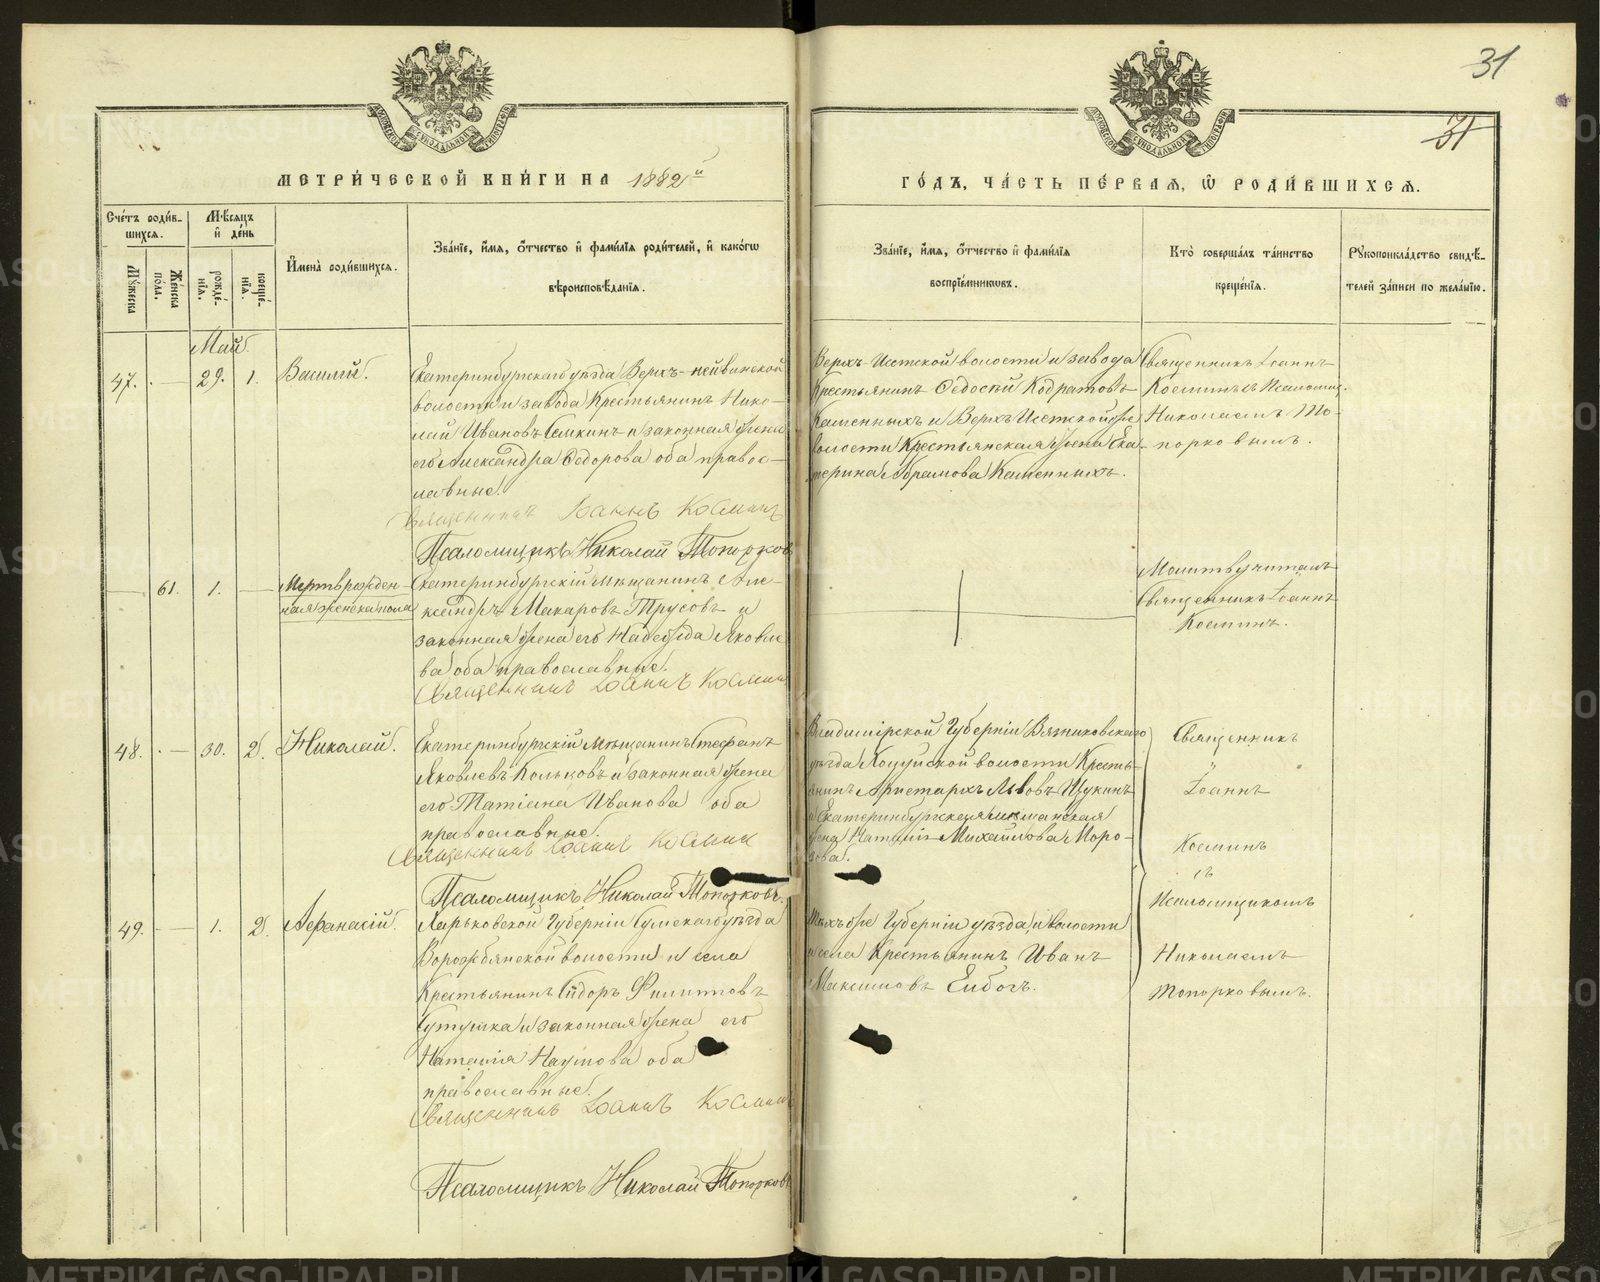 31
31
МЕТРИ́ЧЕСКОЙ КНИ́ГИ НА 1882й
ГО́ДЪ, ЧА́СТЬ ПЕ́РВАЯ, Ѽ РОДИ́ВШИХСЯ.
Сче́тъ роди́в-
шихся.
Мꙋ́жеска
Же́нска
по́ла.
Мѣ́сяцъ
и҆ де́нь
рожде́-
нїя.
креще́-
нїя.
И҆мена̀ роди́вшихся.
Зва́нїе, и҆́мя, ѻ҆́тчество и҆ фами́лїя роди́телей, и҆ како́гѡ
вѣроисповѣ́данїя.
Зва́нїе, и҆́мя, ѻ҆́тчество и҆ фами́лїя
воспрїе́мниковъ.
Кто̀ соверша́лъ та́инство
креще́нїя.
Рꙋкоприкла́дство свидѣ́-
телей за́писи по жела́нїю.
Май.
47. — 29. 1. Василій.
Екатеринбургскаго уѣзда Верхъ-нейвинской
волости и завода Крестьянинъ Нико-
лай Ивановъ Семкинъ и законная жена
его Александра Ѳедорова оба правос-
лавные.
Священникъ Іоаннъ Косминъ
Псаломщикъ Николай Топорковъ
Верхъ-Исетской волости и завода
Крестьянинъ Ѳедосѣй Кодратовъ
Каменныхъ и Верхъ Исетской же
волости Крестьянская жена Ека-
терина Абрамова Каменныхъ.
Священникъ Іоаннъ
Косминъ съ Псаломщ.
Николаемъ То-
порковымъ.
— 61. 1. — Мертворожден-
ная женска пола
Екатеринбургскій мѣщанинъ Але-
ксандръ Макаровъ Трусовъ и
законная жена его Надежда Яковле-
ва оба православные.
Священникъ Іоаннъ Косминъ
Молитву читалъ
Священникъ Іоаннъ
Косминъ.
48. — 30. 2. Николай.
Екатеринбургскій мѣщанинъ Стефанъ
Яковлевъ Кольцовъ и законная жена
его Татіана Иванова оба
православные.
Священникъ Іоаннъ Косминъ
Псаломщикъ Николай Топорковъ.
Владимірской Губерніи Вязниковскаго
уѣзда волости Кресть-
янинъ Аристархъ Львовъ Щукинъ
и Екатеринбургская мѣщанская
жена Михайлова Моро-
зова.
Священникъ
Іоаннъ
Косминъ
съ
Псаломщикомъ
Николаемъ
Топорковымъ.
49. — 1. 2. Афанасій.
Харьковской Губерніи Сумскаго уѣзда
Ворожбянской волости и села
Крестьянинъ Сидоръ Филипповъ
и законная жена его
Наталія Наумова оба
православные.
Священникъ Іоаннъ Косминъ
Псаломщикъ Николай Топорковъ
Тѣхъ же Губерніи уѣзда, и волости
и села Крестьянинъ Иванъ
Максимовъ
METRIKI.GASO-URAL.RU